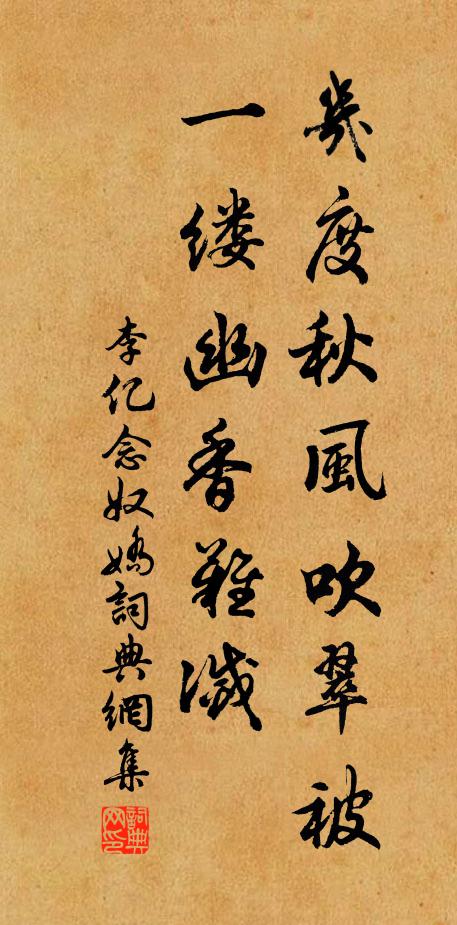 幾度秋風吹翠被
一缕幽香難滅
李亿念奴嬌詞典網集
詞典网印